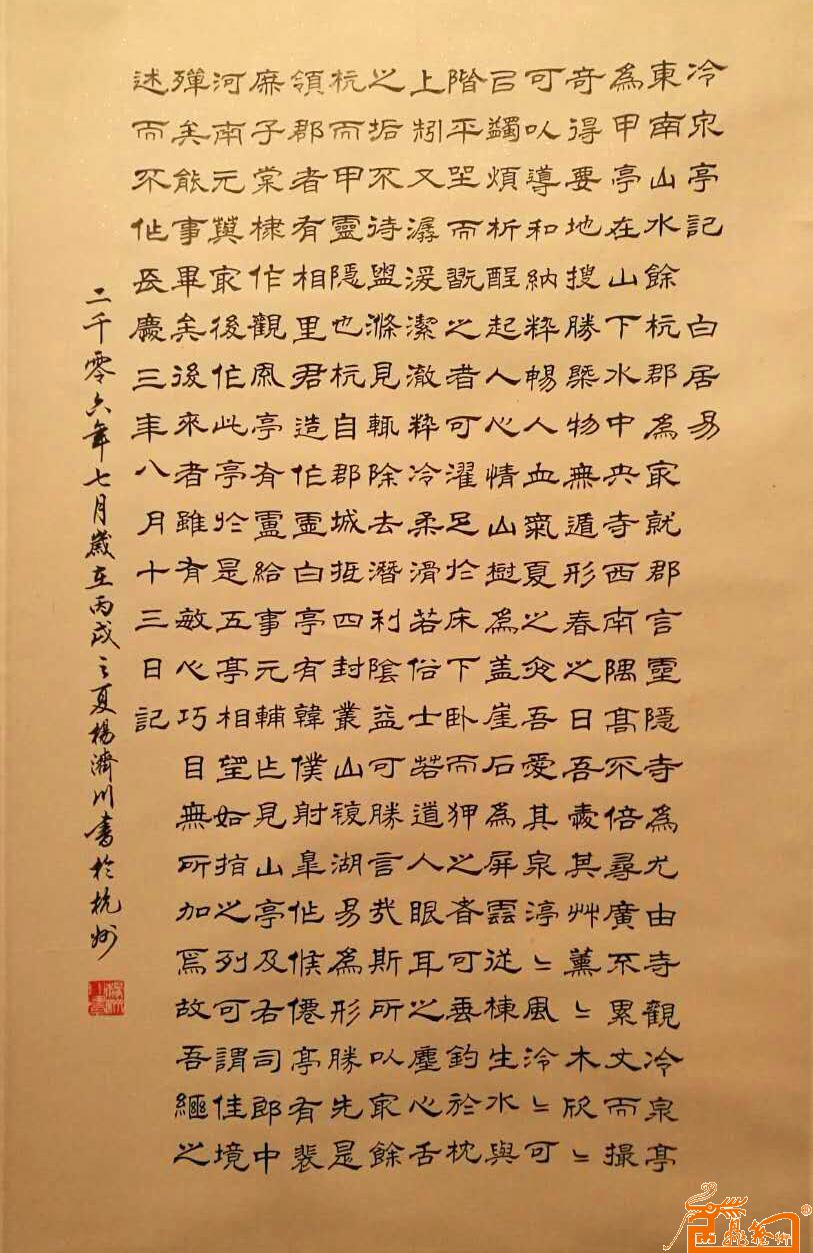 冷泉亭記 白居易
東南山水餘杭郡為冣就郡言靈隱寺為尤由寺觀冷泉亭
為甲亭在山下水中央寺西南隅髙不倍尋廣不累丈而撮
奇得要地搜勝槩物無遁形春之日吾愛其艸薰〻木欣〻
可以導和納粹暢人血氣夏之夜吾愛其泉渟〻風泠〻可
㠯蠲煩析酲起人心情山樹為盖崖石為屏雲從棟生水與
階平坐而翫之者可濯足於床下卧而狎之者可垂釣於枕
上矧又潺湲潔澈粹冷柔滑若俗士若道人眼耳之塵心舌
之垢不待盥滌見輒除去潛利陰益可勝言哉斯所以冣餘
杭而甲靈隱也杭自郡城抵四封叢山複湖易為形勝先是
領郡者有相里君造作虛白亭有韓僕射皋作候僊亭有裴
庶子棠棣作觀風亭有盧給事元輔作見山亭及右司郎中
河南元藇冣後作此亭於是五亭相望如指之列可謂佳境
殫矣能事畢矣後來者雖有敏心巧目無所加焉故吾繼之
述而不作長慶三年八月十三日記
二千零六年七月歲在丙戌之夏楊濟川書於杭州